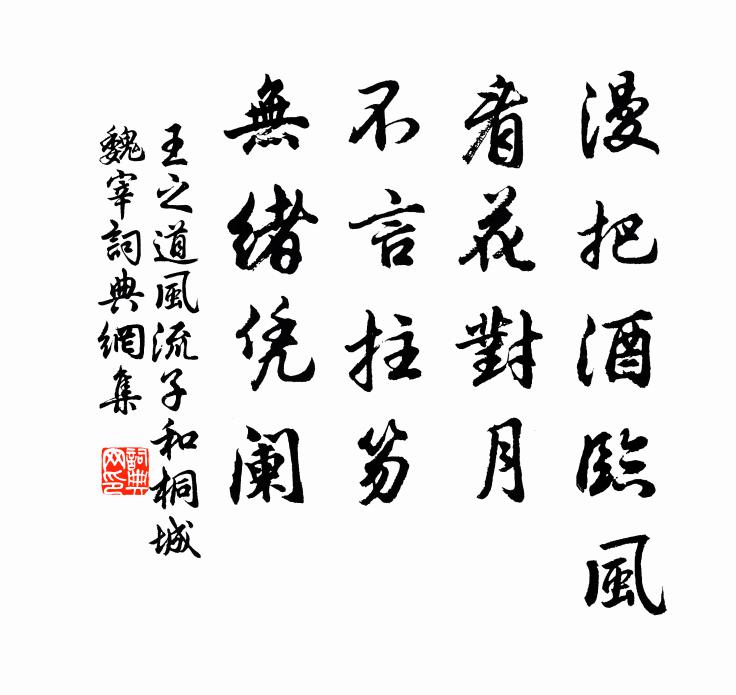 漫把酒臨風
看花對月
不言拄笏
無緒凭阑
王之道風流子和桐城
魏宰詞典網集
詞典网印